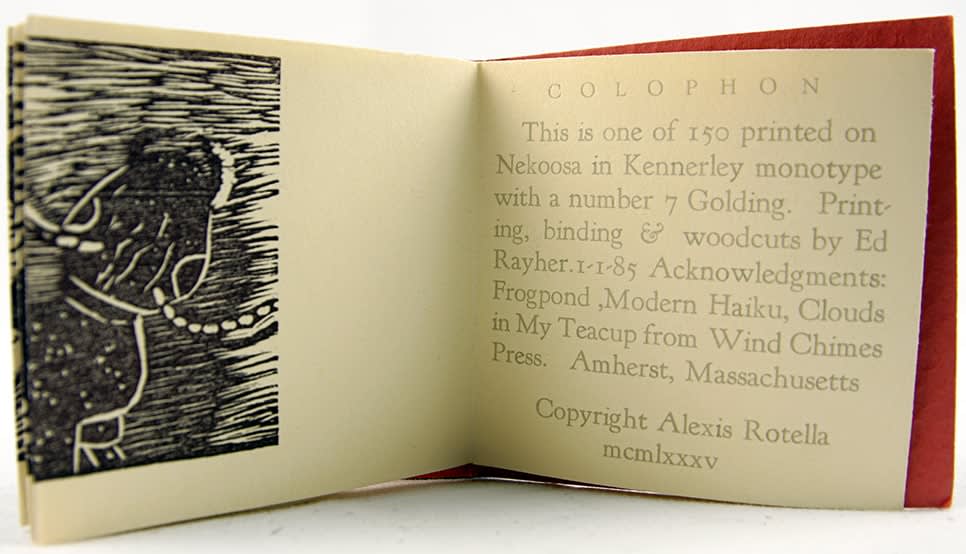 COLOPHON
This is one of 150 printed on
Nekoosa in Kennerley monotype
with a number 7 Golding. Print-
ing, binding & woodcuts by Ed
Rayher.1-1-85 Acknowledgments:
Frogpond ,Modern Haiku, Clouds
in My Teacup from Wind Chimes
Press. Amherst, Massachusetts
Copyright Alexis Rotella
mcmlxxxv